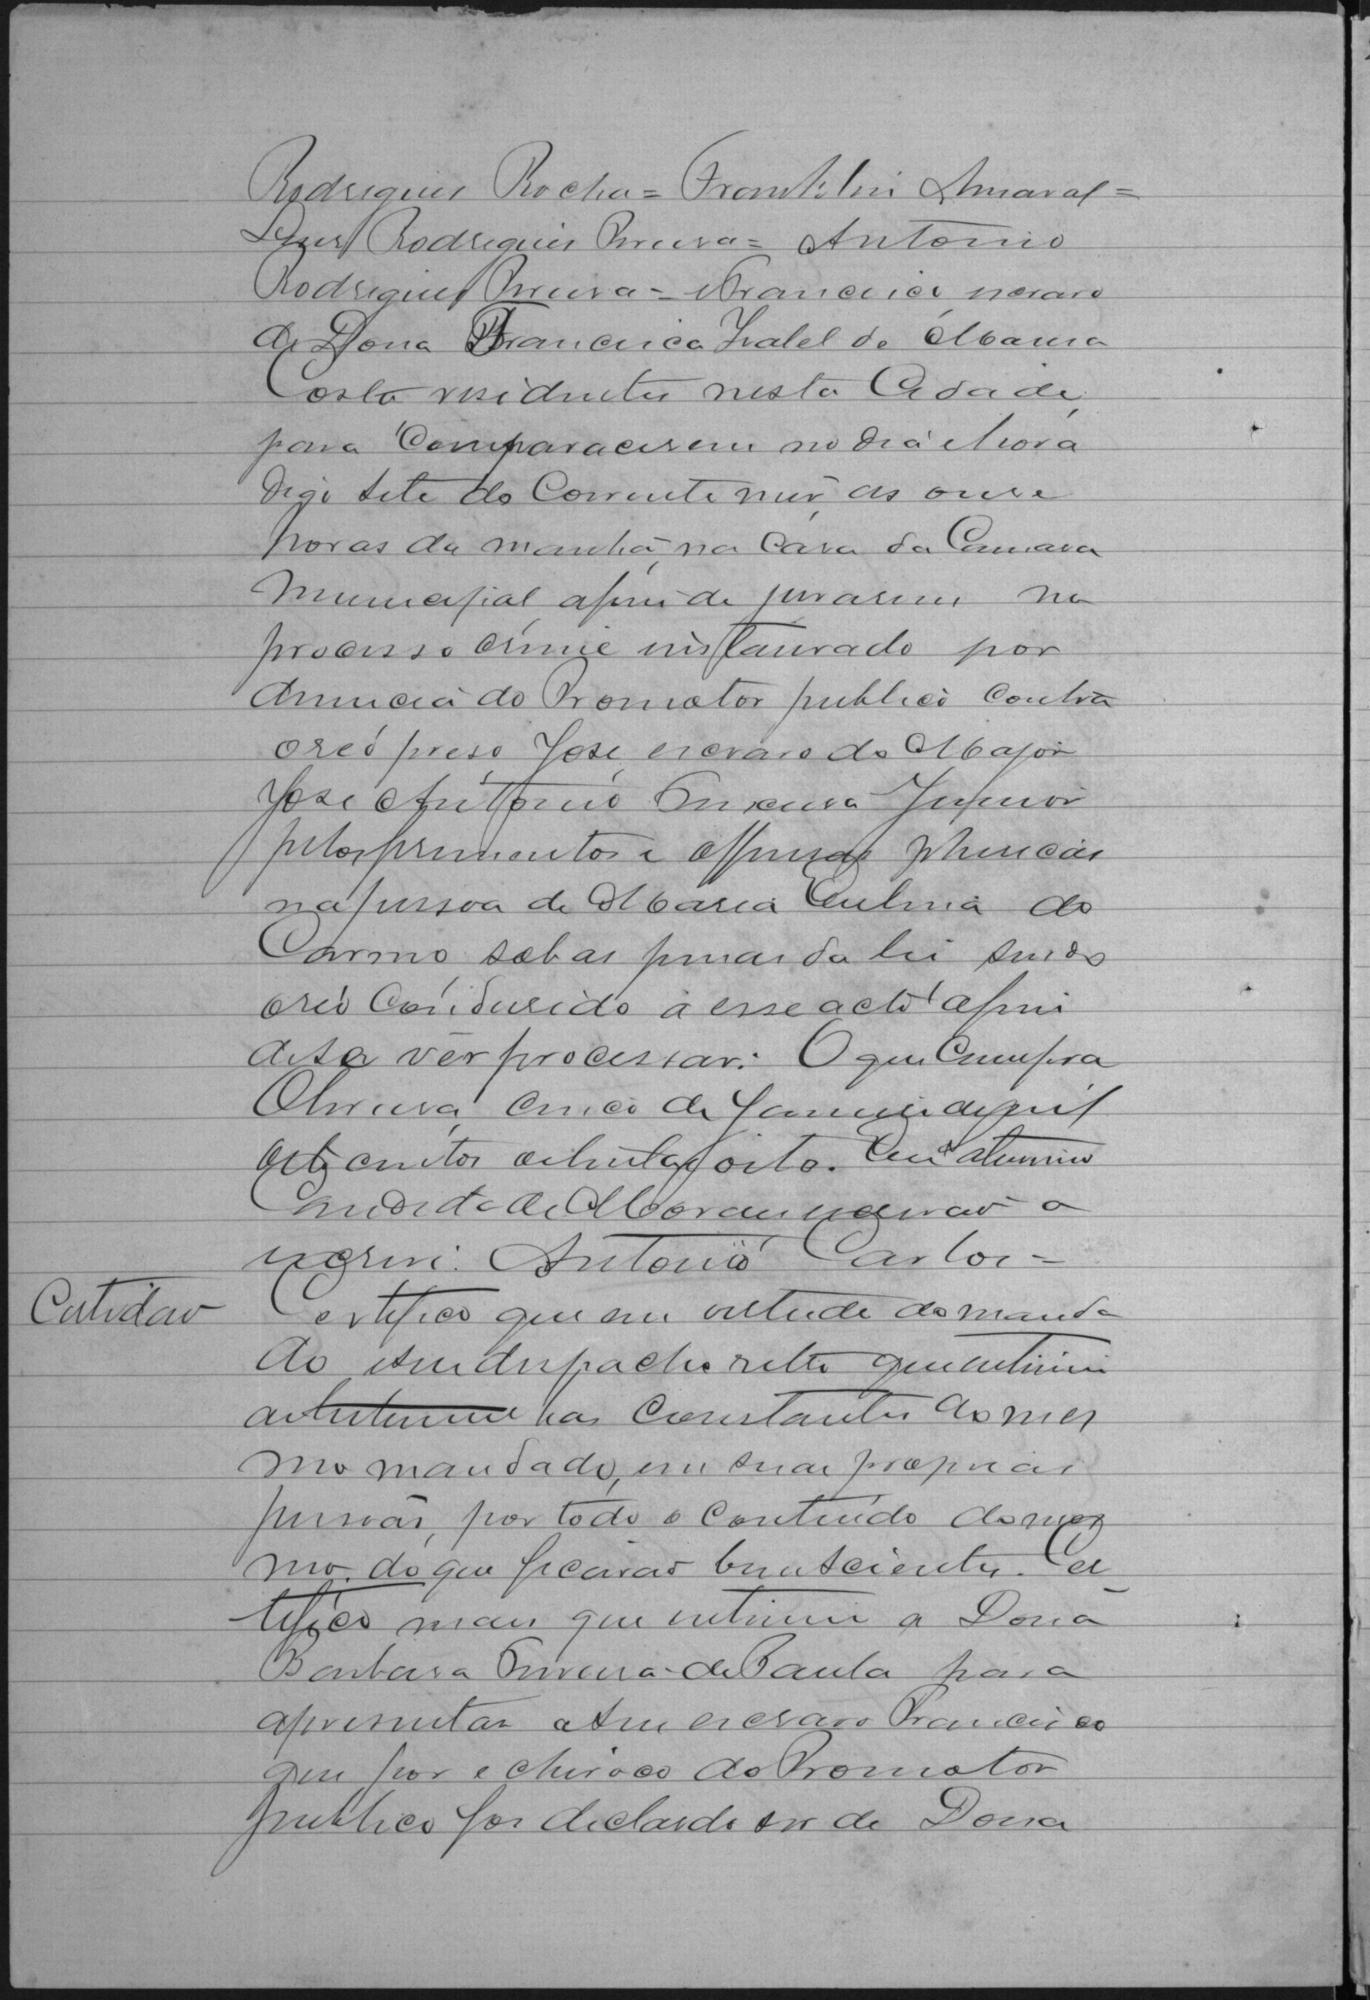 Rodrigues Rocha = Franklin Amaral =
Luis Rodrigues Pereira = Antonio
Rodrigues Pereira = Francisco escravo
de Dona Francisca Izabel de Moura
Costa residentes nesta Cidade,
para comparacerem no dia e hora
desi sete do Corrente mes, as onse
horas da manhã, na casa da Camara
Municipal, afim de jurarem no
processo crime instaurado por
denuncia do Promotor publico contra
o reo preso José, escravo do Major
José Antonio Junior
pelos ferimentos e offensas phisicas
na pessoa de Maria do
Carmo, sob as penas da lei sendo
o reo condusido a esse acto afim
de se ver processar. O que cumpra
Oliveira, cinco de Janeiro de mil
oito centos oitenta e oito. Eu
Candido de Moraes escrivão o
escrevi. Antonio Carlos =
Certidão Certifico que em virtude do manda
do e seu despacho retro que intimei
as testemunhas constantes do mes
mo mandado, em suas proprias
pessoas, por todo o conteudo do mes
mo. do que ficarão bem scientes. Cer
tifico mais que intimei a Dona
Barbara Ferreira de Paula para
apresentar a seu escravo Francisco
que por equivoco do Promotor
publico foi declardo ser de Dona